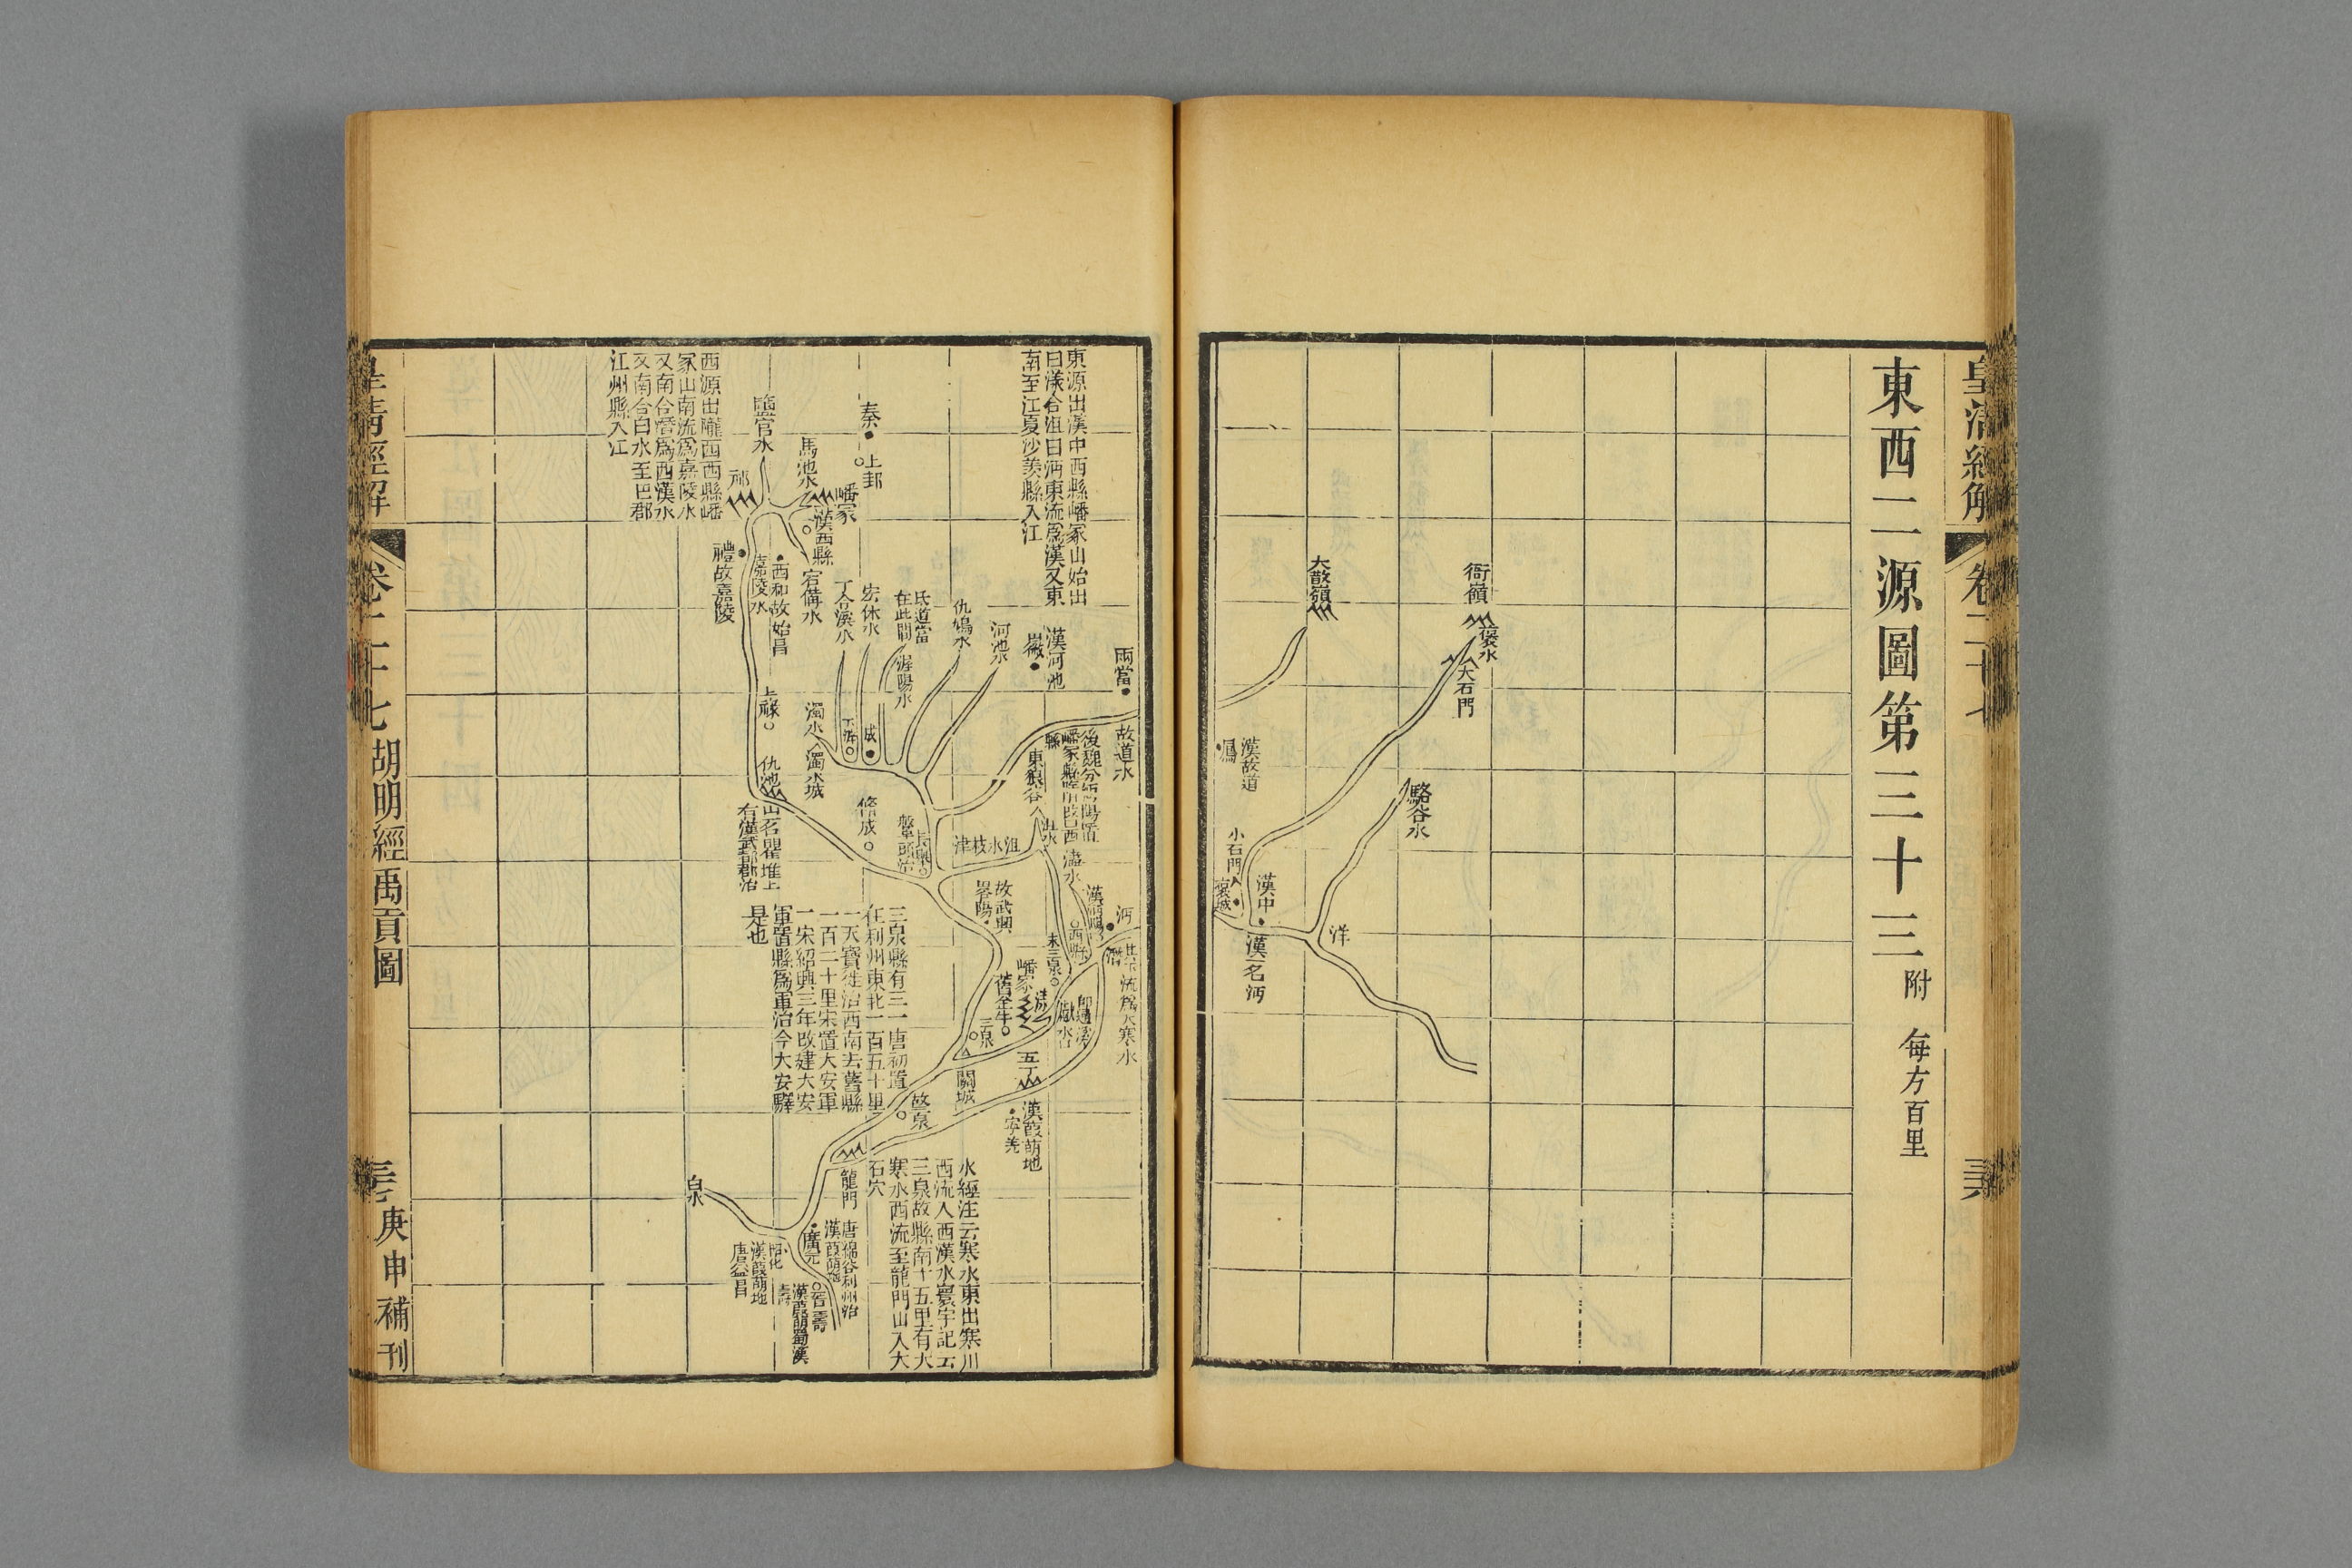 皇清經解
卷二十七
東西二源圖第三十三附 每方百里
衙嶺
褒水
大石門
大散嶺
駱谷水
漢故道
鳳
小石門
褒城
漢中
漢一名沔
洋
兩當
故道水
東源出漢中西縣嶓冢山始出
曰漾合沮曰沔東流爲漢又東
南至江夏沙羨縣入江
漢河池
徽
河池水
仇鳩水
氐道當
在此間
渥陽水
宏休水
丁合溪水
宕備水
秦
上邽
嶓冢
漢西縣
馬池水
鹽官水
祁
西源出隴西西縣嶓
冢山南流爲嘉陵水
又南合濳爲西漢水
又南合白水至巴郡
江州縣入江
禮故嘉陵
嘉陵水
西和故始昌
上祿
濁水
濁水城
下辨
成
仇池
山名瞿堆上
有漢武都郡治
脩成
長舉
盤頭治
沮水枝津
東狼谷
沮水
漢沔陽
西縣
沔
濳
故武興
畧陽
嶓冢
舊金牛
三泉
五丁
關城
漢葭萌地
寧羌
三泉縣有三一唐初置
在利州東北一百五十里
一天寶徙治西南去舊縣
一百二十里宋置大安軍
一宋紹興三年改建大安
軍置縣爲軍治今大安驛
是也
龍門
水經注云寒水東出寒川
西流入西漢水寰宇記云
三泉故縣南十五里有大
寒水西流至龍門山入大
石穴
白水
唐綿谷利州治
漢葭萌地
廣元
昭化
漢葭萌地
唐益昌
晉壽
漢葭萌蜀漢
漢壽
皇清經解
卷二十七 胡明經禹貢圖
庚申補刊